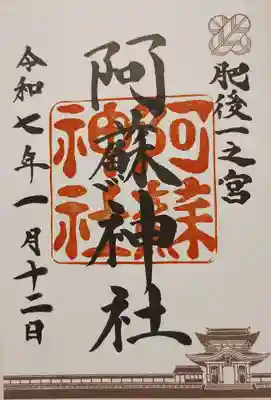 肥後一之宮
阿蘇神社
阿蘇神社
令和七年一月十二日